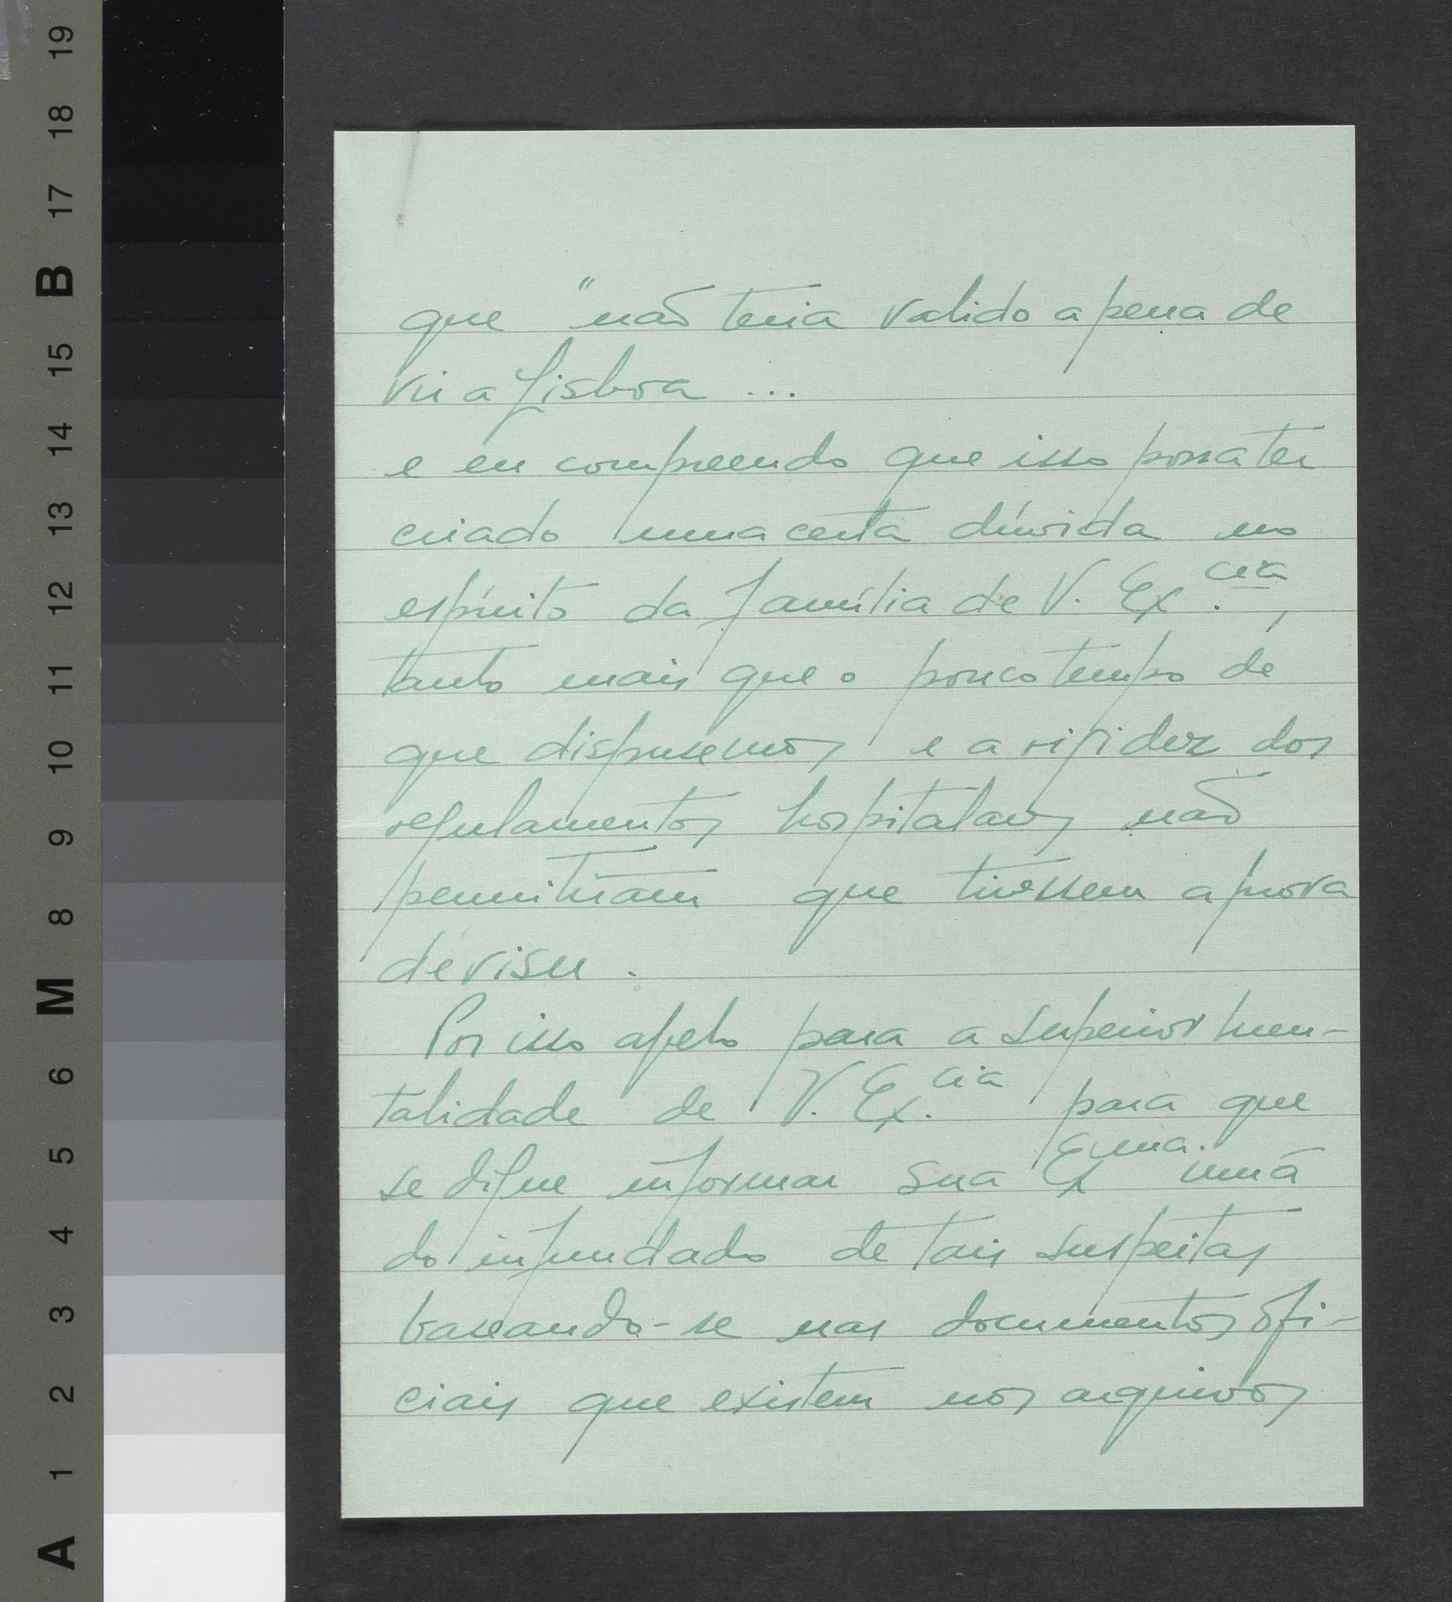 que "não teria valido a pena de
vir a Lisboa ...
e eu compreendo que isso possa ter
criado uma certa dúvida no
espírito da família de V. Ex.cia,
tanto mais que o pouco tempo de
que dispusemos e a rigidez dos
regulamentos hospitalares não
permitiram que tivessem a prova
de visu.
Por isso apelo para a superior men-
talidade de V. Ex.cia para que
se digne informar sua Exma. irmã
do infundado de tais suspeitas
baseando-se nos documentos ofi-
ciais que existem nos arquivos
19
18
17
B
15
14
13
12
11
10
9
8
M
6
5
4
3
2
1
A